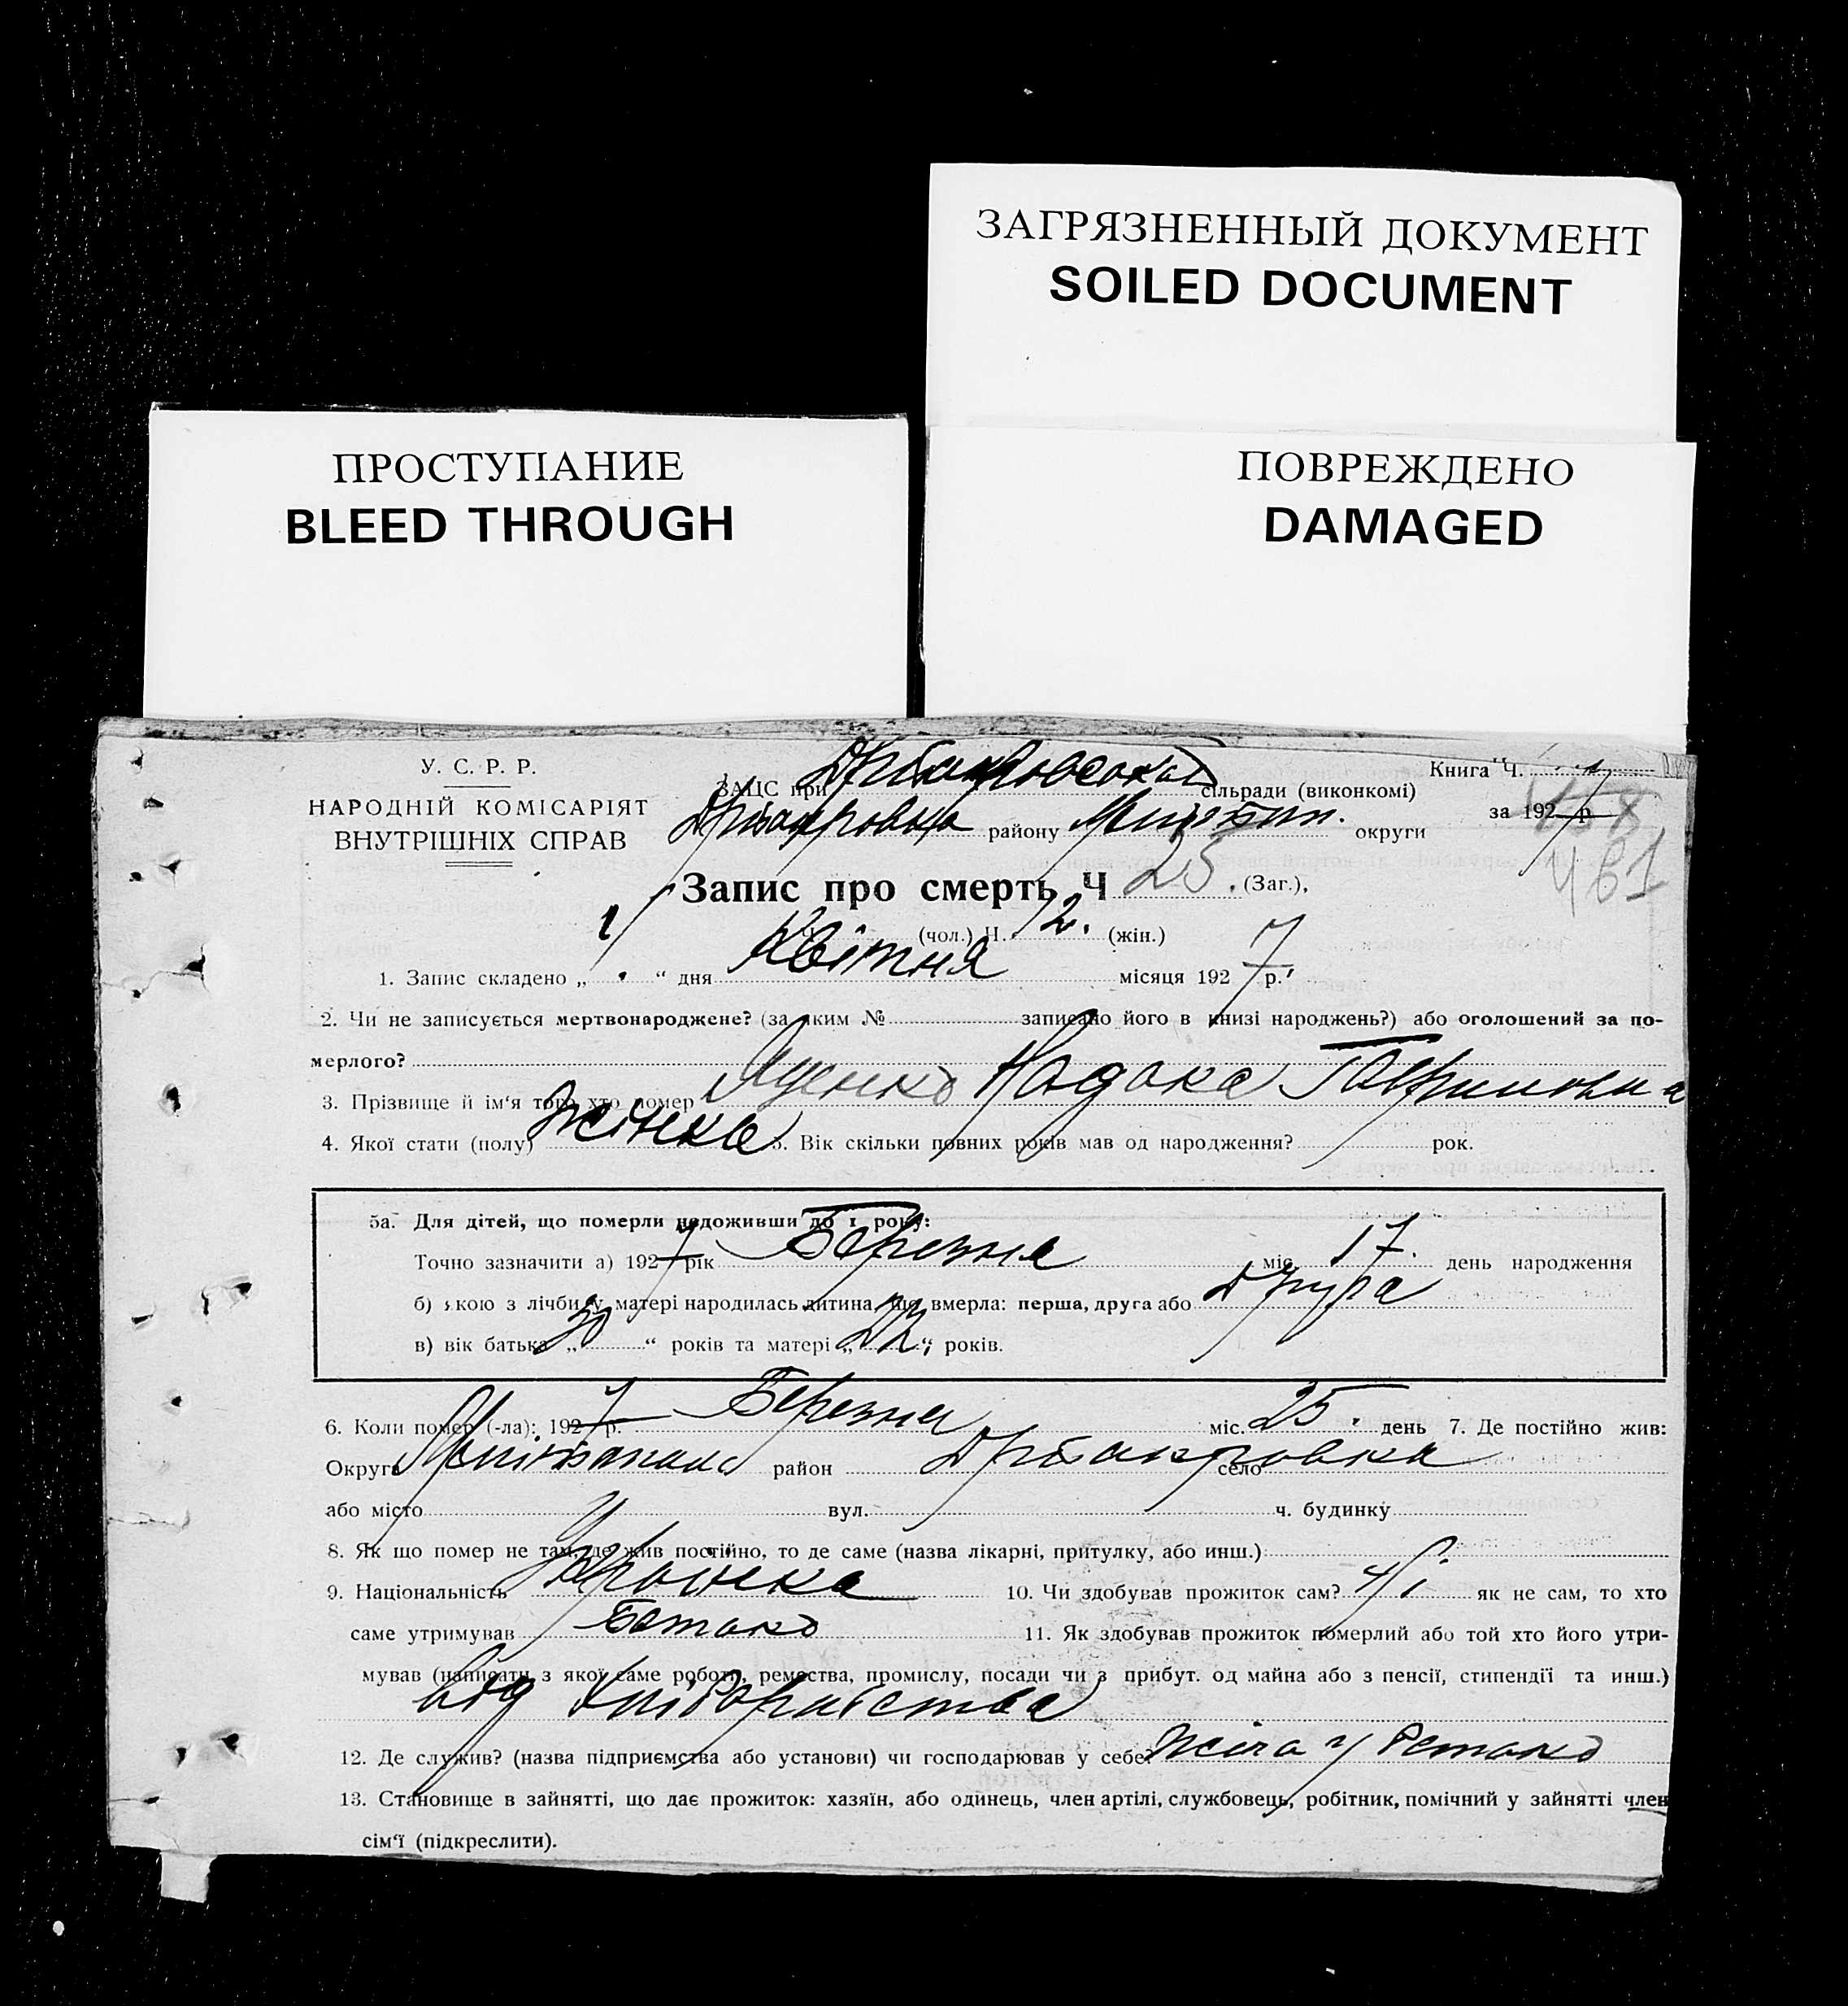 ЗАГРЯЗНЕННЫЙ ДОКУМЕНТ
SOILED DOCUMENT
ПРОСТУПАНИЕ
BLEED THROUGH
ПОВРЕЖДЕНО
DAMAGED
У. С. Р. Р.
НАРОДНІЙ КОМІСАРІЯТ
ВНУТРІШНІХ СПРАВ
ЗАЦС при сільради (виконкомі)
району округи
Книга Ч.
за 1927 р.
461
Запис про смерть Ч 25. (Заг.),
Ч. (чол.) Ч. 12. (жін.)
1. Запис складено „ 1 “ дня Квітня місяця 1927 р.
2. Чи не записується мертвонароджене? (за яким № записано його в книзі народжень?) або оголошений за по-
мерлого?
3. Прізвище й ім‘я того хто помер Яценко
4. Якої стати (полу) Жінка 5. Вік скільки повних років мав од народження? рок.
5а. Для дітей, що померли недоживши до 1 року:
Точно зазначити а) 1927 рік Березня міс. 17. день народження
б) якою з лічби у матері народилась дитина, що вмерла: перша, друга або Друга
в) вік батька „ 30 “ років та матері „ 22 “ років.
6. Коли помер (-ла): 1927 р. Березня міс. 25. день 7. Де постійно жив:
Округа район село
або місто вул. ч. будинку
8. Як що помер не там, де жив постійно, то де саме (назва лікарні, притулку, або инш.)
9. Національність Украінка 10. Чи здобував прожиток сам? Ні як не сам, то хто
саме утримував Батько 11. Як здобував прожиток померлий або той хто його утри-
мував (написати з якої саме роботи, ремества, промислу, посади чи з прибут. од майна або з пенсії, стипендії та инш.)
від Хліборобства
12. Де служив? (назва підприємства або установи) чи господарював у себе? Жила у Батька
13. Становище в зайнятті, що дає прожиток: хазяїн, або одинець, член артілі, службовець, робітник, помічний у зайнятті член
сім‘ї (підкреслити).